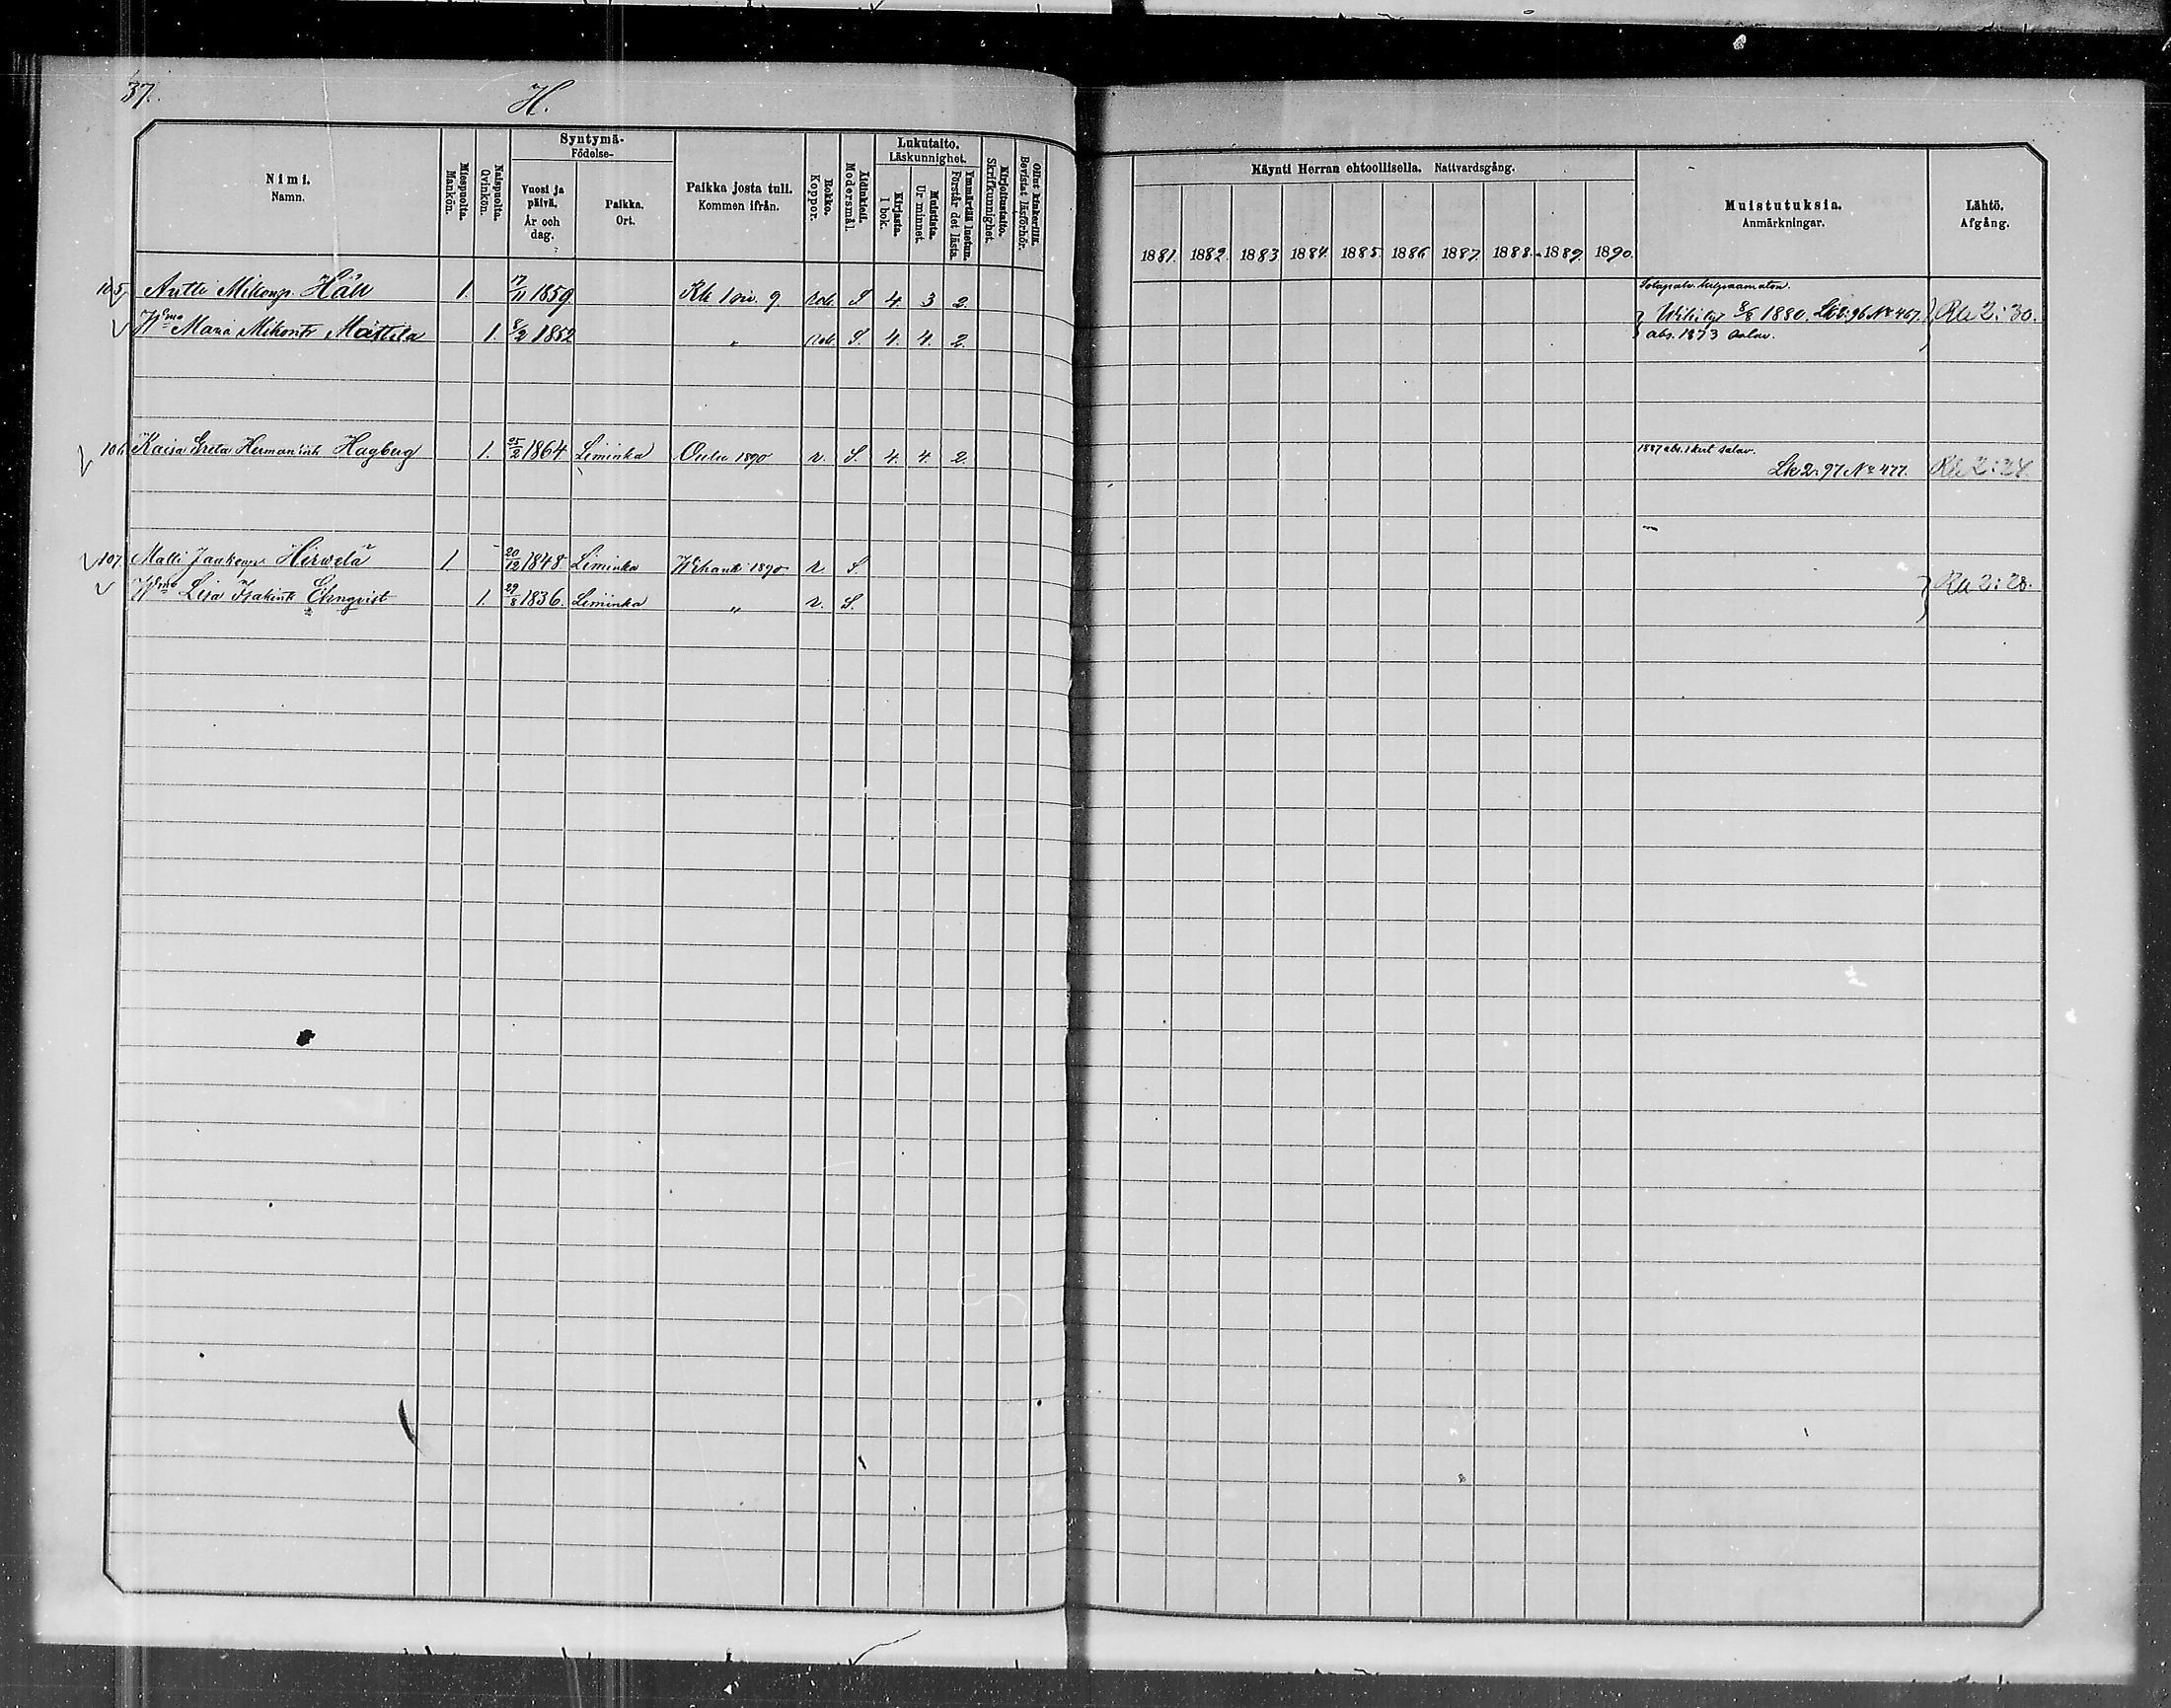 37.
H.
Nimi.
Namn.
Miespuolta.
Mankön.
Naispuolta.
Qvinkön.
Syntymä-
Födelse-
Vuosi ja
päivä.
År och
dag.
Paikka.
Ort.
Paikka josta tuli.
Kommen ifrån.
Rokko.
Koppor.
Äidinkieli.
Modersmål.
Lukutaito.
Läskunnighet.
Kirjasta.
I bok.
Muistista.
Ur minnet.
Ymmärtää luetun.
Förstår det lästa.
Kirjoitustaito.
Skrifkunnighet.
Ollut kinkerillä.
Bevistat läsförhör.
Käynti Herran ehtoollisella. Nattvardsgång.
1881. 1882. 1883 1884. 1885. 1886 1887. 1888. 1889. 1890.
Muistutuksia.
Anmärkningar.
Lähtö.
Afgång.
105 Antti Mikonp. Häll 1. 17/11 1859 Rk 1 siv. 9 rok. S 4. 3 2.
Wihityt 8/8 1880. Lk 2:96 № 467 Rk 2:30.
Wmo Maria Mikontr Mattila 1. 8/2 1852 " rok S. 4. 4. 2.
abs. 1873 salav.
106 Kaisa Greta Hermanintr Hagberg 1. 25/2 1864 Liminka Oulu 1890 r. S. 4. 4. 2.
1887 abs. 1 kert salav.
Lk 2:97 № 477. Rk 2:24.
107 Matti Jaakonp. Hirwelä 1. 20/12 1848 Liminka Wihanti 1890 r. S.
Wmo Lisa Isakintr Ehnqvist 1. 29/8 1836. Liminka " r. S.
Rk 2:28.